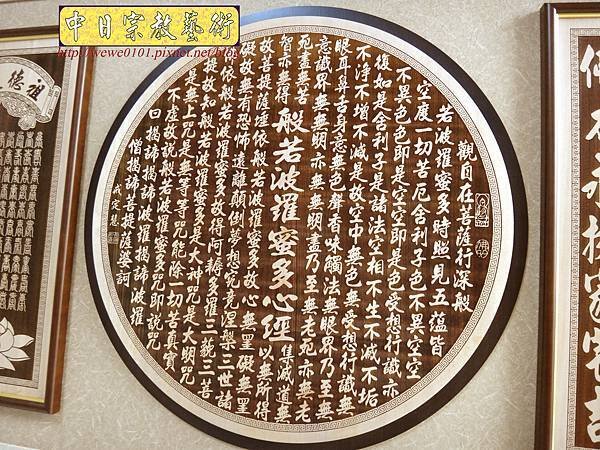 中日宗教藝術
http://yewe0101.pixnet.net/blog
觀自在菩薩行深般
若波羅蜜多時照見五蘊皆
空度一切苦厄舍利子色不異空空
不異色色即是空空即是色受想行識亦
復如是舍利子是諸法空相不生不滅不垢
不淨不增不減是故空中無色無受想行識無
眼耳鼻舌身意無色聲香味觸法無眼界乃至無
意識界無無明亦無無明盡乃至無老死亦無老
死盡無苦集滅道無
智亦無得以無所得
般若波羅蜜多心經
故菩提薩埵依般若波羅蜜多故心無罣礙無罣
礙故無有恐怖遠離顛倒夢想究竟涅槃三世諸
佛依般若波羅蜜多故得阿耨多羅三藐三菩
提故知般若波羅蜜多是大神咒是大明咒
是無上咒是無等等咒能除一切苦真實
不虛故說般若波羅蜜多咒即說咒
曰揭諦揭諦波羅揭諦波羅
僧揭諦菩提薩婆訶
戒定慧
祖德